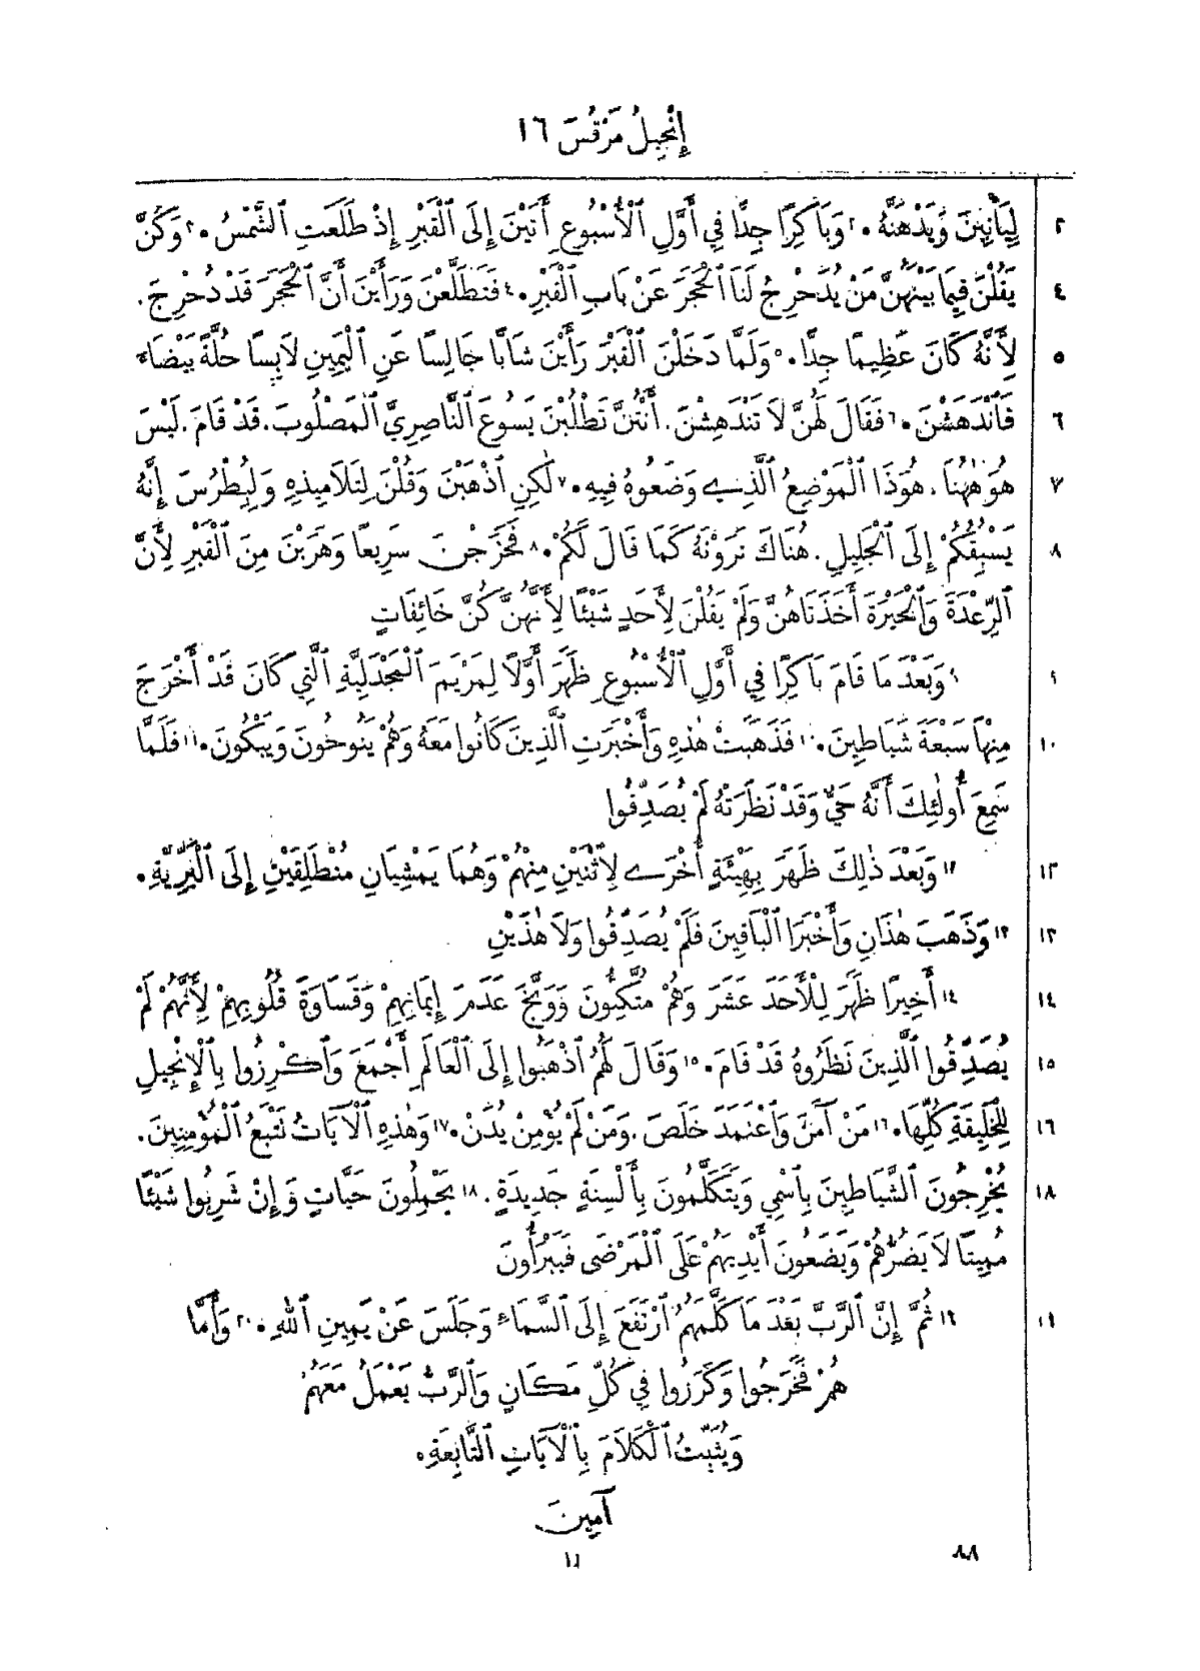 إِنْجِيلُ مَرْقُسَ ١٦
٢ لِيَأْتِينَ وَيَدْهَنَّهُ. ٢ وَبَاكِرًا جِدًّا فِي أَوَّلِ ٱلْأُسْبُوعِ أَتَيْنَ إِلَى ٱلْقَبْرِ إِذْ طَلَعَتِ ٱلشَّمْسُ. ٣ وَكُنَّ
٤ يَقُلْنَ فِيمَا بَيْنَهُنَّ مَنْ يُدَحْرِجُ لَنَا ٱلْحَجَرَ عَنْ بَابِ ٱلْقَبْرِ. ٤ فَتَطَلَّعْنَ وَرَأَيْنَ أَنَّ ٱلْحَجَرَ قَدْ دُحْرِجَ.
٥ لِأَنَّهُ كَانَ عَظِيمًا جِدًّا. ٥ وَلَمَّا دَخَلْنَ ٱلْقَبْرَ رَأَيْنَ شَابًّا جَالِسًا عَنِ ٱلْيَمِينِ لَابِسًا حُلَّةً بَيْضَاءَ
٦ فَٱنْدَهَشْنَ. ٦ فَقَالَ لَهُنَّ لَا تَنْدَهِشْنَ. أَنْتُنَّ تَطْلُبْنَ يَسُوعَ ٱلنَّاصِرِيَّ ٱلْمَصْلُوبَ. قَدْ قَامَ. لَيْسَ
٧ هُوَ هٰهُنَا. هُوَذَا ٱلْمَوْضِعُ ٱلَّذِي وَضَعُوهُ فِيهِ. ٧ لٰكِنِ ٱذْهَبْنَ وَقُلْنَ لِتَلَامِيذِهِ وَلِبُطْرُسَ إِنَّهُ
٨ يَسْبِقُكُمْ إِلَى ٱلْجَلِيلِ. هُنَاكَ تَرَوْنَهُ كَمَا قَالَ لَكُمْ. ٨ فَخَرَجْنَ سَرِيعًا وَهَرَبْنَ مِنَ ٱلْقَبْرِ لِأَنَّ
ٱلرِّعْدَةَ وَٱلْحَيْرَةَ أَخَذَتَاهُنَّ وَلَمْ يَقُلْنَ لِأَحَدٍ شَيْئًا لِأَنَّهُنَّ كُنَّ خَائِفَاتٍ
٩ ٩ وَبَعْدَ مَا قَامَ بَاكِرًا فِي أَوَّلِ ٱلْأُسْبُوعِ ظَهَرَ أَوَّلًا لِمَرْيَمَ ٱلْمَجْدَلِيَّةِ ٱلَّتِي كَانَ قَدْ أَخْرَجَ
١٠ مِنْهَا سَبْعَةَ شَيَاطِينَ. ١٠ فَذَهَبَتْ هٰذِهِ وَأَخْبَرَتِ ٱلَّذِينَ كَانُوا مَعَهُ وَهُمْ يَنُوحُونَ وَيَبْكُونَ. ١١ فَلَمَّا
سَمِعَ أُولٰئِكَ أَنَّهُ حَيٌّ وَقَدْ نَظَرَتْهُ لَمْ يُصَدِّقُوا
١٢ ١٢ وَبَعْدَ ذٰلِكَ ظَهَرَ بِهَيْئَةٍ أُخْرَى لِٱثْنَيْنِ مِنْهُمْ وَهُمَا يَمْشِيَانِ مُنْطَلِقَيْنِ إِلَى ٱلْبَرِّيَّةِ.
١٣ ١٣ وَذَهَبَ هٰذَانِ وَأَخْبَرَا ٱلْبَاقِينَ فَلَمْ يُصَدِّقُوا وَلَا هٰذَيْنِ
١٤ ١٤ أَخِيرًا ظَهَرَ لِلْأَحَدَ عَشَرَ وَهُمْ مُتَّكِئُونَ وَوَبَّخَ عَدَمَ إِيمَانِهِمْ وَقَسَاوَةَ قُلُوبِهِمْ لِأَنَّهُمْ لَمْ
١٥ يُصَدِّقُوا ٱلَّذِينَ نَظَرُوهُ قَدْ قَامَ. ١٥ وَقَالَ لَهُمُ ٱذْهَبُوا إِلَى ٱلْعَالَمِ أَجْمَعَ وَٱكْرِزُوا بِٱلْإِنْجِيلِ
١٦ لِلْخَلِيقَةِ كُلِّهَا. ١٦ مَنْ آمَنَ وَٱعْتَمَدَ خَلَصَ. وَمَنْ لَمْ يُؤْمِنْ يُدَنْ. ١٧ وَهٰذِهِ ٱلْآيَاتُ تَتْبَعُ ٱلْمُؤْمِنِينَ.
١٨ يُخْرِجُونَ ٱلشَّيَاطِينَ بِٱسْمِي وَيَتَكَلَّمُونَ بِأَلْسِنَةٍ جَدِيدَةٍ. ١٨ يَحْمِلُونَ حَيَّاتٍ وَإِنْ شَرِبُوا شَيْئًا
مُمِيتًا لَا يَضُرُّهُمْ وَيَضَعُونَ أَيْدِيَهُمْ عَلَى ٱلْمَرْضَى فَيَبْرَأُونَ
١٩ ١٩ ثُمَّ إِنَّ ٱلرَّبَّ بَعْدَ مَا كَلَّمَهُمُ ٱرْتَفَعَ إِلَى ٱلسَّمَاءِ وَجَلَسَ عَنْ يَمِينِ ٱللهِ. ٢٠ وَأَمَّا
هُمْ فَخَرَجُوا وَكَرَزُوا فِي كُلِّ مَكَانٍ وَٱلرَّبُّ يَعْمَلُ مَعَهُمْ
وَيُثَبِّتُ ٱلْكَلَامَ بِٱلْآيَاتِ ٱلتَّابِعَةِ.
آمِينَ
٨٨